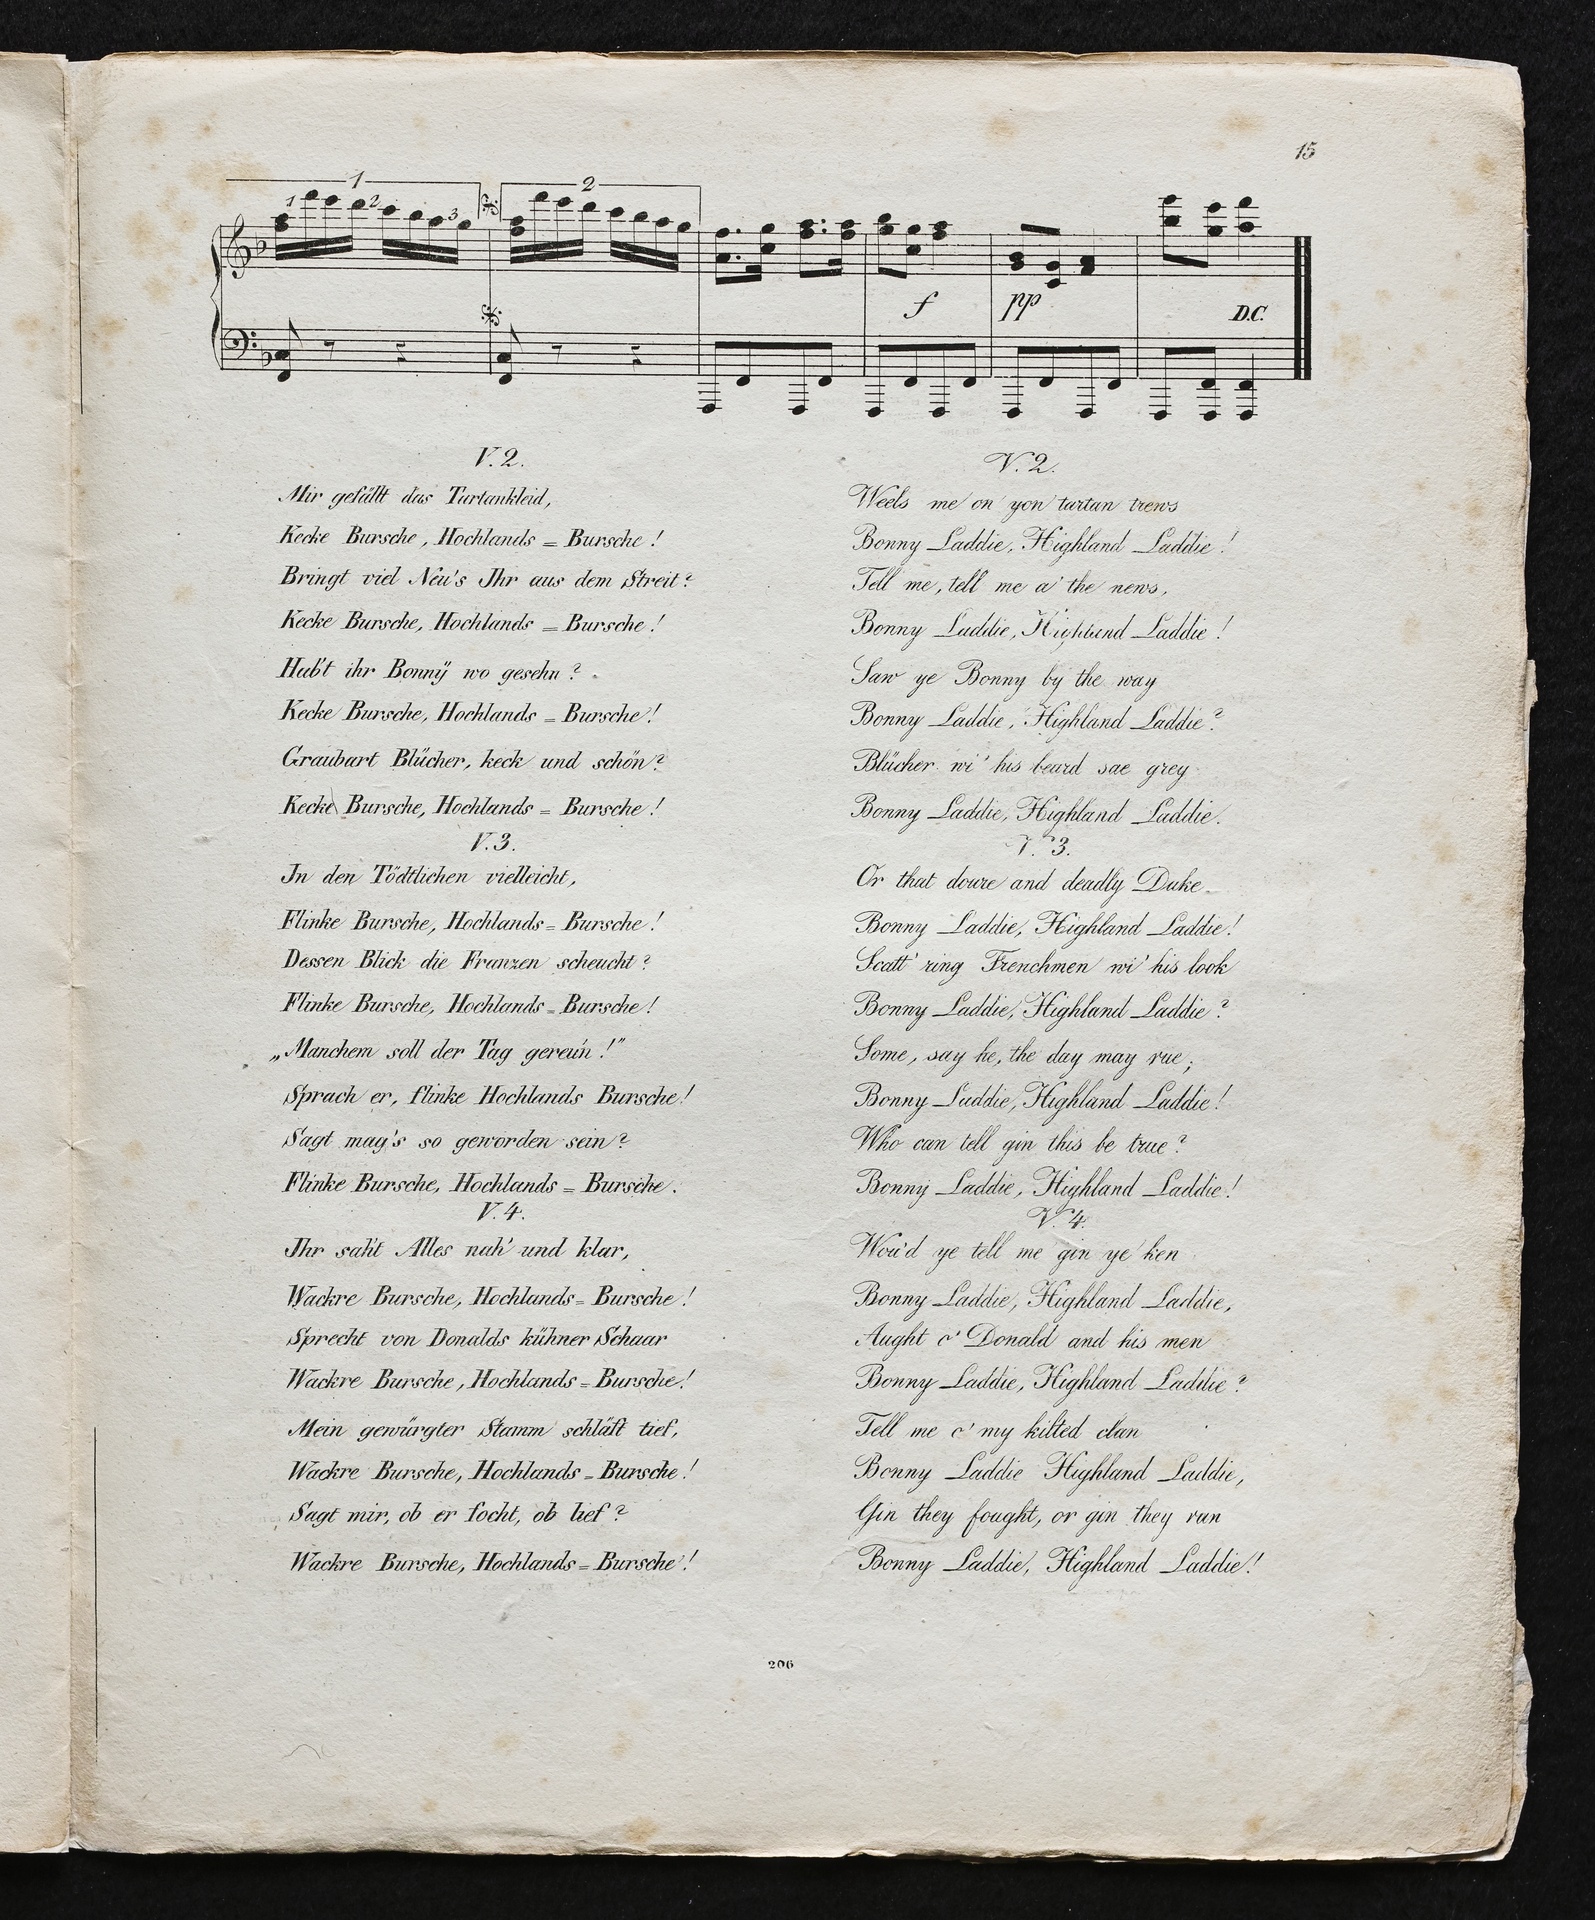 15
1
2
1 2 3
f pp D.C.
V. 2.
Mir gefällt das Tartankleid,
Kecke Bursche, Hochlands = Bursche!
Bringt viel Neu's Ihr aus dem Streit?
Kecke Bursche, Hochlands = Bursche!
Habt ihr Bonnÿ wo gesehn?
Kecke Bursche, Hochlands = Bursche!
Graubart Blücher, keck und schön?
Kecke Bursche, Hochlands = Bursche!
V. 3.
In den Tödtlichen vielleicht,
Flinke Bursche, Hochlands = Bursche!
Dessen Blick die Franzen scheucht?
Flinke Bursche, Hochlands = Bursche!
„Manchem soll der Tag gereu'n!"
Sprach er, flinke Hochlands Bursche!
Sagt mag's so geworden sein?
Flinke Bursche, Hochlands = Bursche.
V. 4.
Ihr saht Alles nah' und klar,
Wackre Bursche, Hochlands = Bursche!
Sprecht von Donalds kühner Schaar
Wackre Bursche, Hochlands = Bursche!
Mein gewürgter Stamm schläft tief,
Wackre Bursche, Hochlands = Bursche!
Sagt mir, ob er focht, ob lief?
Wackre Bursche, Hochlands = Bursche!
V. 2.
Weels me on yon tartan trews
Bonny Laddie, Highland Laddie!
Tell me, tell me a' the news,
Bonny Laddie, Highland Laddie!
Saw ye Bonny by the way
Bonny Laddie, Highland Laddie?
Blücher wi' his beard sae grey
Bonny Laddie, Highland Laddie.
V. 3.
Or that doure and deadly Duke
Bonny Laddie, Highland Laddie!
Scatt'ring Frenchmen wi' his look
Bonny Laddie, Highland Laddie?
Some, say he, the day may rue;
Bonny Laddie, Highland Laddie!
Who can tell gin this be true?
Bonny Laddie, Highland Laddie!
V. 4.
Wou'd ye tell me gin ye ken
Bonny Laddie, Highland Laddie,
Aught o' Donald and his men
Bonny Laddie, Highland Laddie?
Tell me o' my kilted clan
Bonny Laddie Highland Laddie,
Gin they fought, or gin they run
Bonny Laddie, Highland Laddie!
206